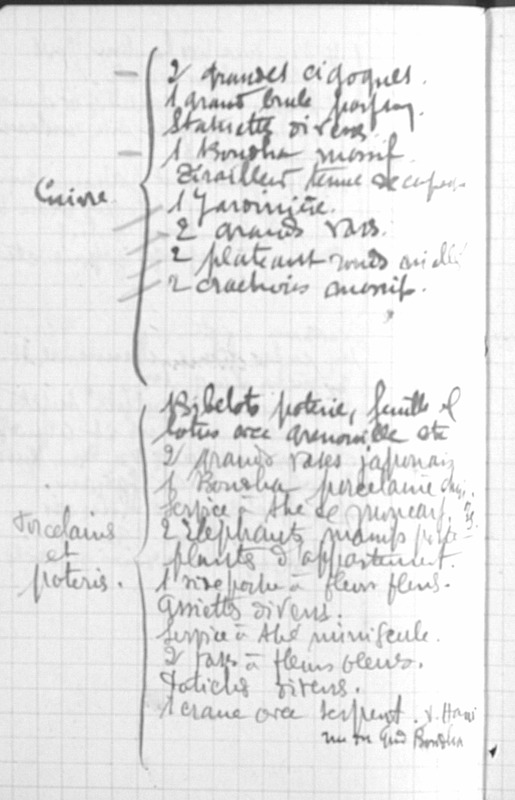 Cuivre
2 grandes cigognes.
1 grand brule parfum.
Statuettes divers.
1 Boudha massif.
Tirailleur tenue de
1 Jardinière.
2 grands vases.
2 plateaux ronds
2 crachoirs massifs.
Porcelaines
et
poteries.
Bibelots poterie, feuille de
lotus avec grenouille etc
2 grands vases japonais
1 Boudha porcelaine
Service à thé de
2 Elephants porte-
plantes d'appartement.
1 vide poche à fleurs bleus.
Assiettes divers.
Service à thé miniscule.
2 vases à fleurs bleues.
Potiches divers.
1 crane avec serpent.
Boudha